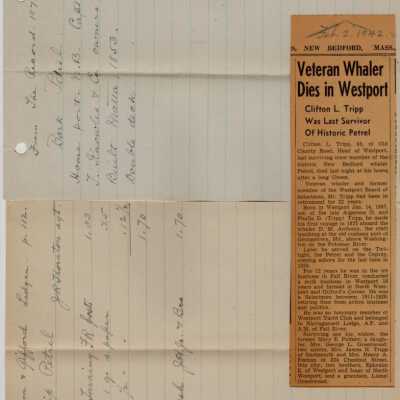 Feb. 2, 1942
S, NEW BEDFORD, MASS.,
Veteran Whaler
Dies in Westport
Clifton L. Tripp
Was Last Survivor
Of Historic Petrel
Clifton L. Tripp, of Old
County Road, Head of Westport,
last surviving crew member of the
historic New Bedford whaler
Petrel, died last night at his home
after a long illness.
Veteran whaler and former
member of the Westport Board of
Selectmen, Mr. Tripp had been in
retirement for 22 years.
Born in Westport Jan. 14, 1857,
son of the late Algernon D. and
Phyllis D. (Tripp) Tripp, he made
his first voyage in 1875 aboard the
whaler D. M. Anthony, the craft
touching at the old customs port of
Georgetown, Md., above Washing-
ton on the Potomac River.
Later he served on the Twi-
light, the Petrel and the Osprey,
coming ashore for the last time in
For 12 years he was in the ice
business in Fall River, conducted
a milk business in Westport 18
years and farmed in North West-
port and Gifford's Corner. He was
a Selectman between 1911-1920,
retiring then from active business
and politics.
He was an honorary member of
Westport Yacht Club and belonged
to Narragansett Lodge, A.F. and
A.M. of Fall River.
Surviving are his widow, the
former Mary E. Potter; a daugh-
ter, Mrs. George L. Greenwood;
two sisters, Mrs. James H. Tripp
of Dartmouth and Mrs. Henry A.
Pettey of 226 Chestnut Street,
this city; two brothers, Ephraim
E. of Westport and Isaac of North
Westport, and a grandson, Lloyd
Greenwood.
From The Record 187
Bark Petrel
Home port N.B.
T. Knowles & Co. owners
Built Matta. 1853
Double deck
& Gifford Ledger p. 112
Petrel
J.B. Thornton agt
Turning posts 1.03
paper .55
.12
1.70
1.70